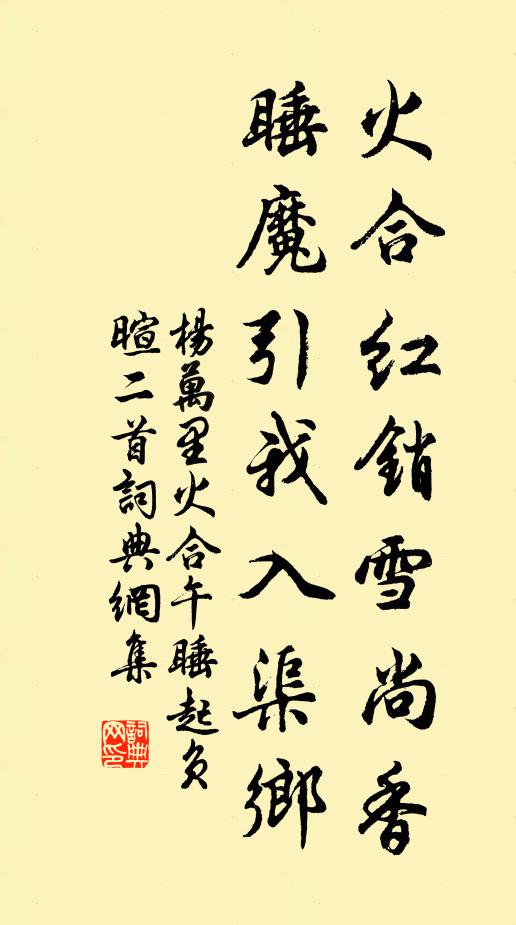 火合紅銷雪尚香
睡魔引我入渠鄉
楊萬里火合午睡起負
暄二首詞典網集
詞典網印